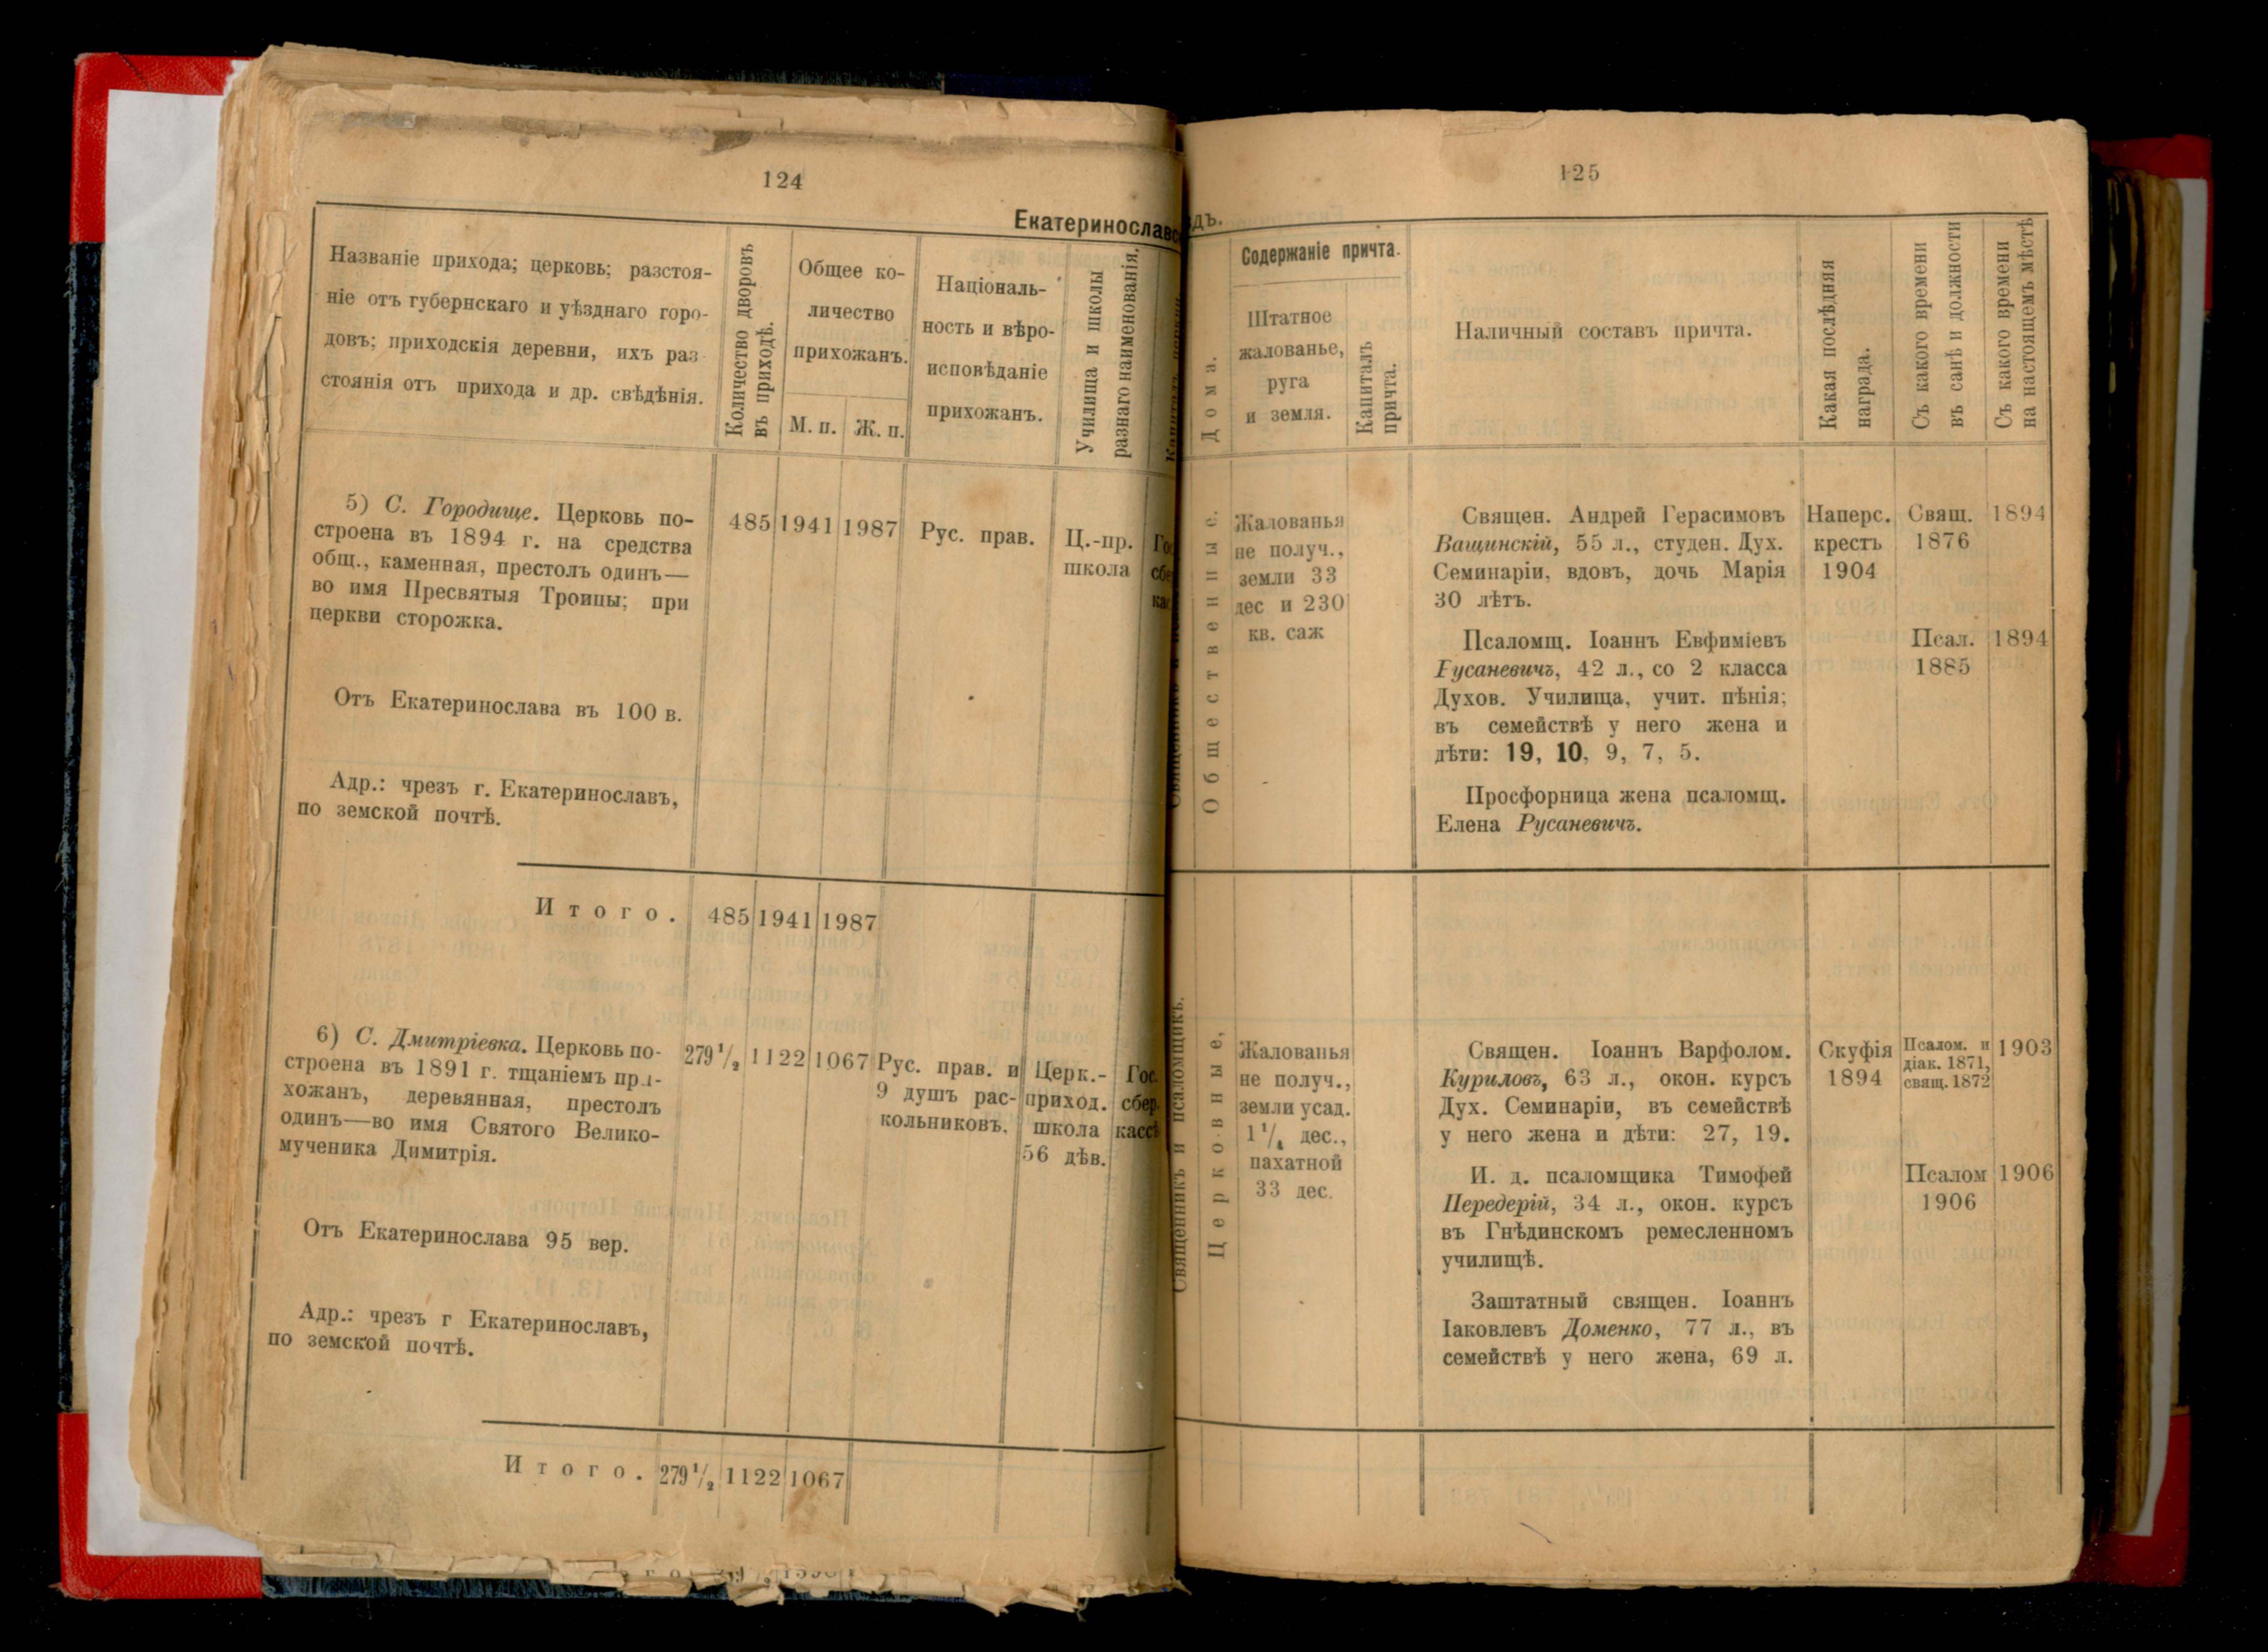 124
Екатеринославс
Названіе прихода; церковь; разстоя-
ніе отъ губернскаго и уѣзднаго горо-
довъ; приходскія деревни, ихъ раз
стоянія отъ прихода и др. свѣдѣнія.
Количество дворовъ
въ приходѣ.
Общее ко-
личество
прихожанъ.
М. п.
Ж. п.
Націоналъ-
ность и вѣро-
исповѣданіе
прихожанъ.
Училища и школы
разнаго наименованія.
5) С. Городище. Церковь по-
строена въ 1894 г. на средства
общ., каменная, престолъ одинъ—
во имя Пресвятыя Троицы; при
церкви сторожка.
485
1941
1987
Рус. прав.
Ц.-пр.
школа
Гос
сбе
кас
Отъ Екатеринослава въ 100 в.
Адр.: чрезъ г. Екатеринославъ,
по земской почтѣ.
Итого. 485 1941 1987
6) С. Дмитріевка. Церковь по-
строена въ 1891 г. тщаніемъ при-
хожанъ, деревянная, престолъ
одинъ—во имя Святого Велико-
мученика Димитрія.
279 1/2
1122
1067
Рус. прав. и
9 душъ рас-
кольниковъ.
Церк.-
приход.
школа
56 дѣв.
Гос.
сбер.
кассѣ
Отъ Екатеринослава 95 вер.
Адр.: чрезъ г Екатеринославъ,
по земской почтѣ.
Итого. 279 1/2 1122 1067
125
дъ.
Дома.
Содержаніе причта.
Штатное
жалованье,
руга
и земля.
Капиталъ
причта.
Наличный составъ причта.
Какая послѣдняя
награда.
Съ какого времени
въ санѣ и должности
Съ какого времени
на настоящемъ мѣстѣ
Общественные.
Жалованья
не получ.,
земли 33
дес и 230
кв. саж
Священ. Андрей Герасимовъ
Ващинскій, 55 л., студен. Дух.
Семинаріи, вдовъ, дочь Марія
30 лѣтъ.
Наперс.
крестъ
1904
Свящ.
1876
1894
Псаломщ. Іоаннъ Евфиміевъ
Русаневичъ, 42 л., со 2 класса
Духов. Училища, учит. пѣнія;
въ семействѣ у него жена и
дѣти: 19, 10, 9, 7, 5.
Псал.
1885
1894
Просфорница жена псаломщ.
Елена Русаневичъ.
Священникъ и псаломщикъ.
Церковные,
Жалованья
не получ.,
земли усад.
1 1/4 дес.,
пахатной
33 дес.
Священ. Іоаннъ Варфолом.
Куриловъ, 63 л., окон. курсъ
Дух. Семинаріи, въ семействѣ
у него жена и дѣти: 27, 19.
Скуфія
1894
Псалом. и
діак. 1871,
свящ. 1872
1903
И. д. псаломщика Тимофей
Передерій, 34 л., окон. курсъ
въ Гнѣдинскомъ ремесленномъ
училищѣ.
Псалом
1906
1906
Заштатный священ. Іоаннъ
Іаковлевъ Доменко, 77 л., въ
семействѣ у него жена, 69 л.